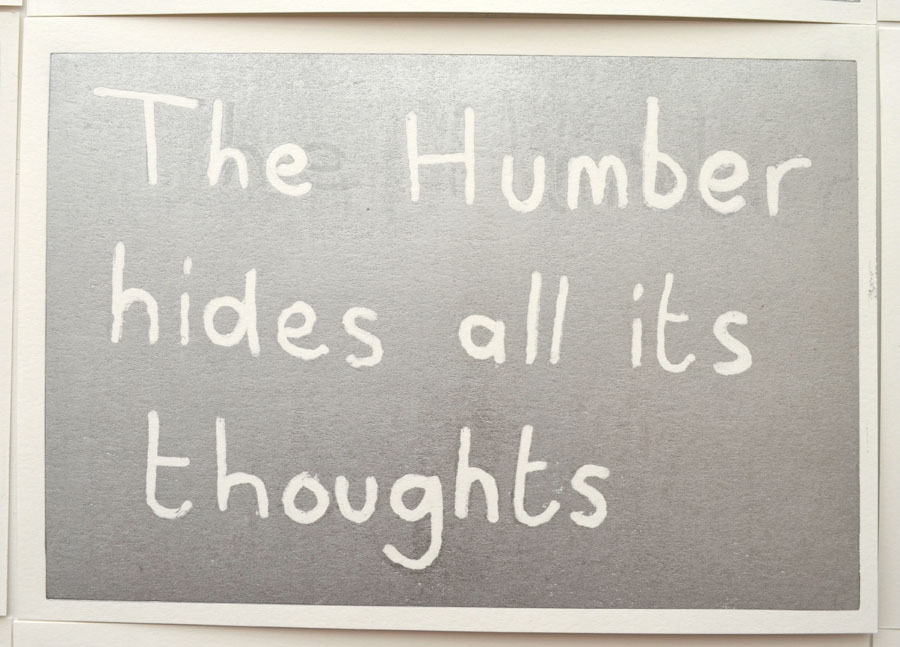 The Humber
hides all its
thoughts